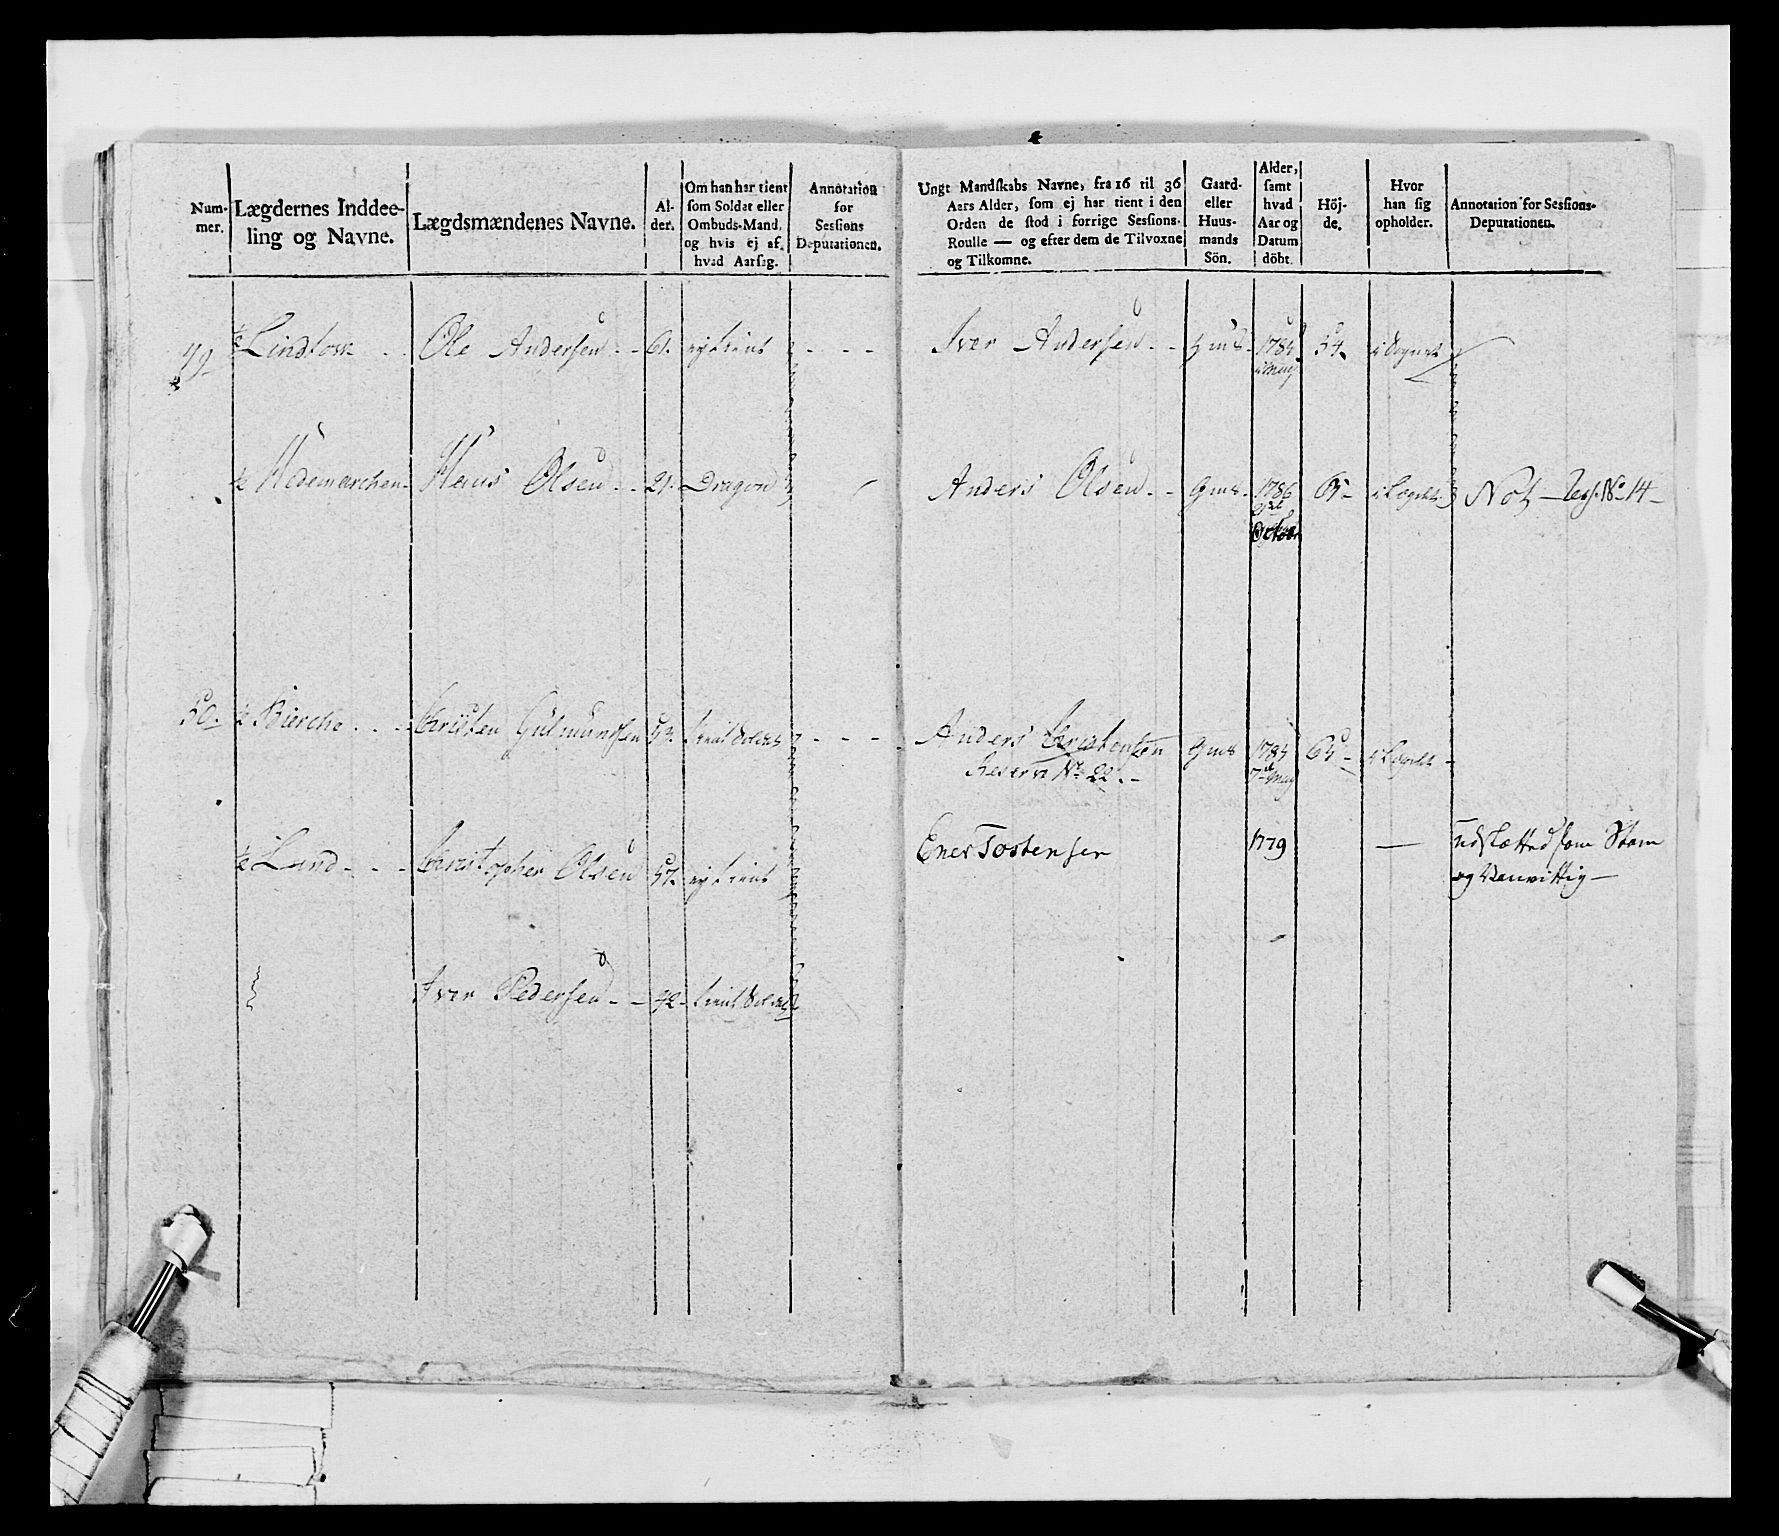 Num-
mer.
Lægdernes Inddee-
ling og Navne.
Lægdsmændenes Navne.
Al-
der.
Om han har tient
som Soldat eller
Ombuds-Mand,
og hvis ej af
hvad Aarsag.
Annotation
for
Sessions
Deputationen.
Ungt Mandskabs Navne, fra 16 til 36
Aars Alder, som ej har tient i den
Orden de stod i forrige Sessions-
Roulle — og efter dem de Tilvoxne
og Tilkomne.
Gaard-
eller
Huus-
mands
Sön.
Alder,
samt
hvad
Aar og
Datum
döbt.
Höj-
de.
Hvor
han sig
opholder.
Annotation for Sessions-
Deputationen.
49 ½ Ole Andersen - - 61. ej tient - - - - Iver Andersen - - 54.
½ Hedemarchen - Hans Olsen - - 21. Dragon Anders Olsen - - Gms. 1786 i Lægdet Not - No 14 -
October
50. ½ Bierche . . . Christen Gulmundsen 53. tient Soldat - - - Anders Christensen Gms i Lægdet -
Reserve No 22. -
½ Lund - - - Christopher Olsen 57. ej tient Ener Tostensen 1779 — udslætted som Stom
og Vanvittig —
Iver Pedersen - - 42 - tient Soldat